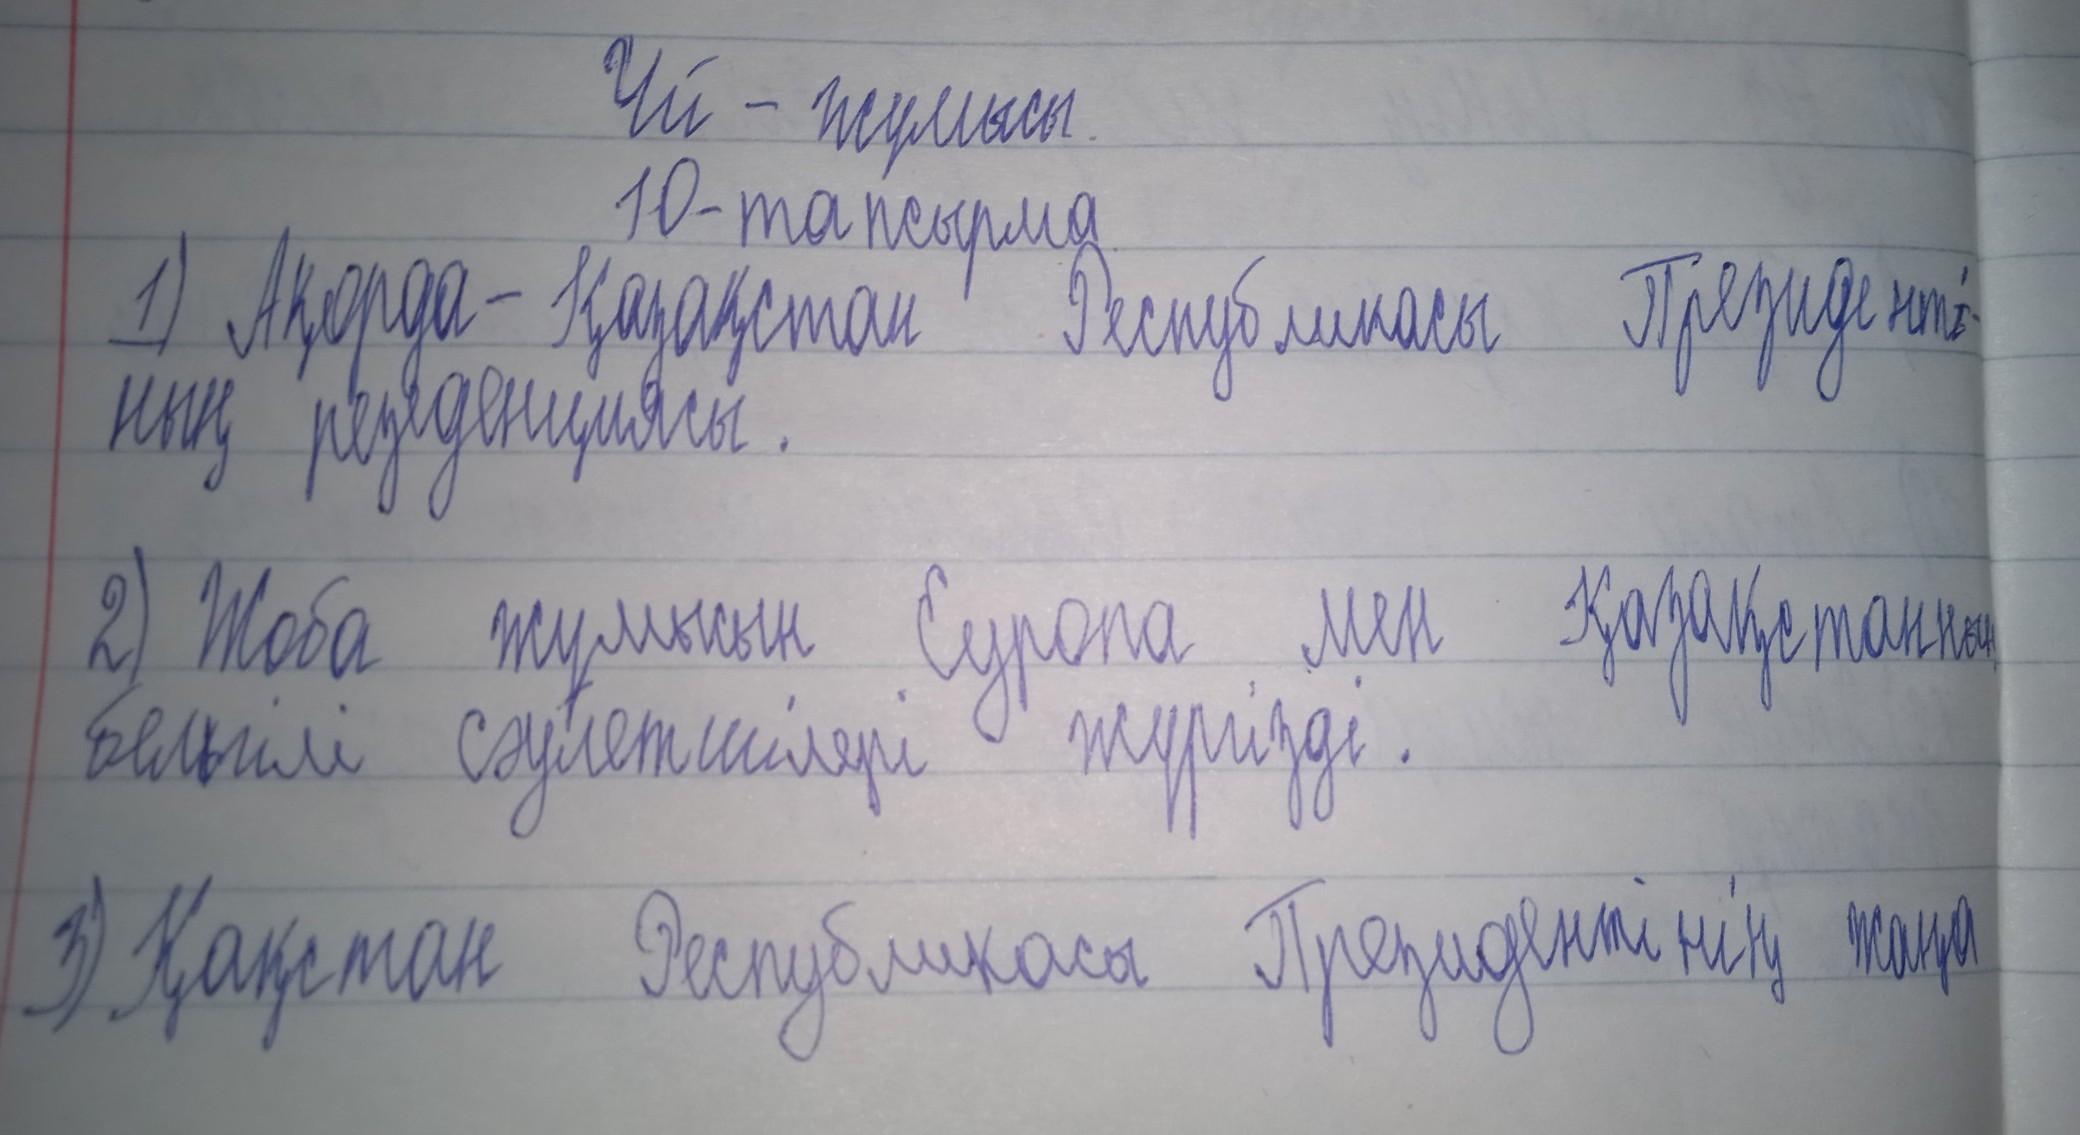 Үй - жұмысы.
10-тапсырма
1) Ақорда - Қазақстан Республикасы Президенті-
ның резеденциясы.
2) Жоба жұмысын Еуропа мен Қазақстанның
белгілі сәулетшілері жүргізді.
3) Қақстан Республикасы Президентінің жаңа